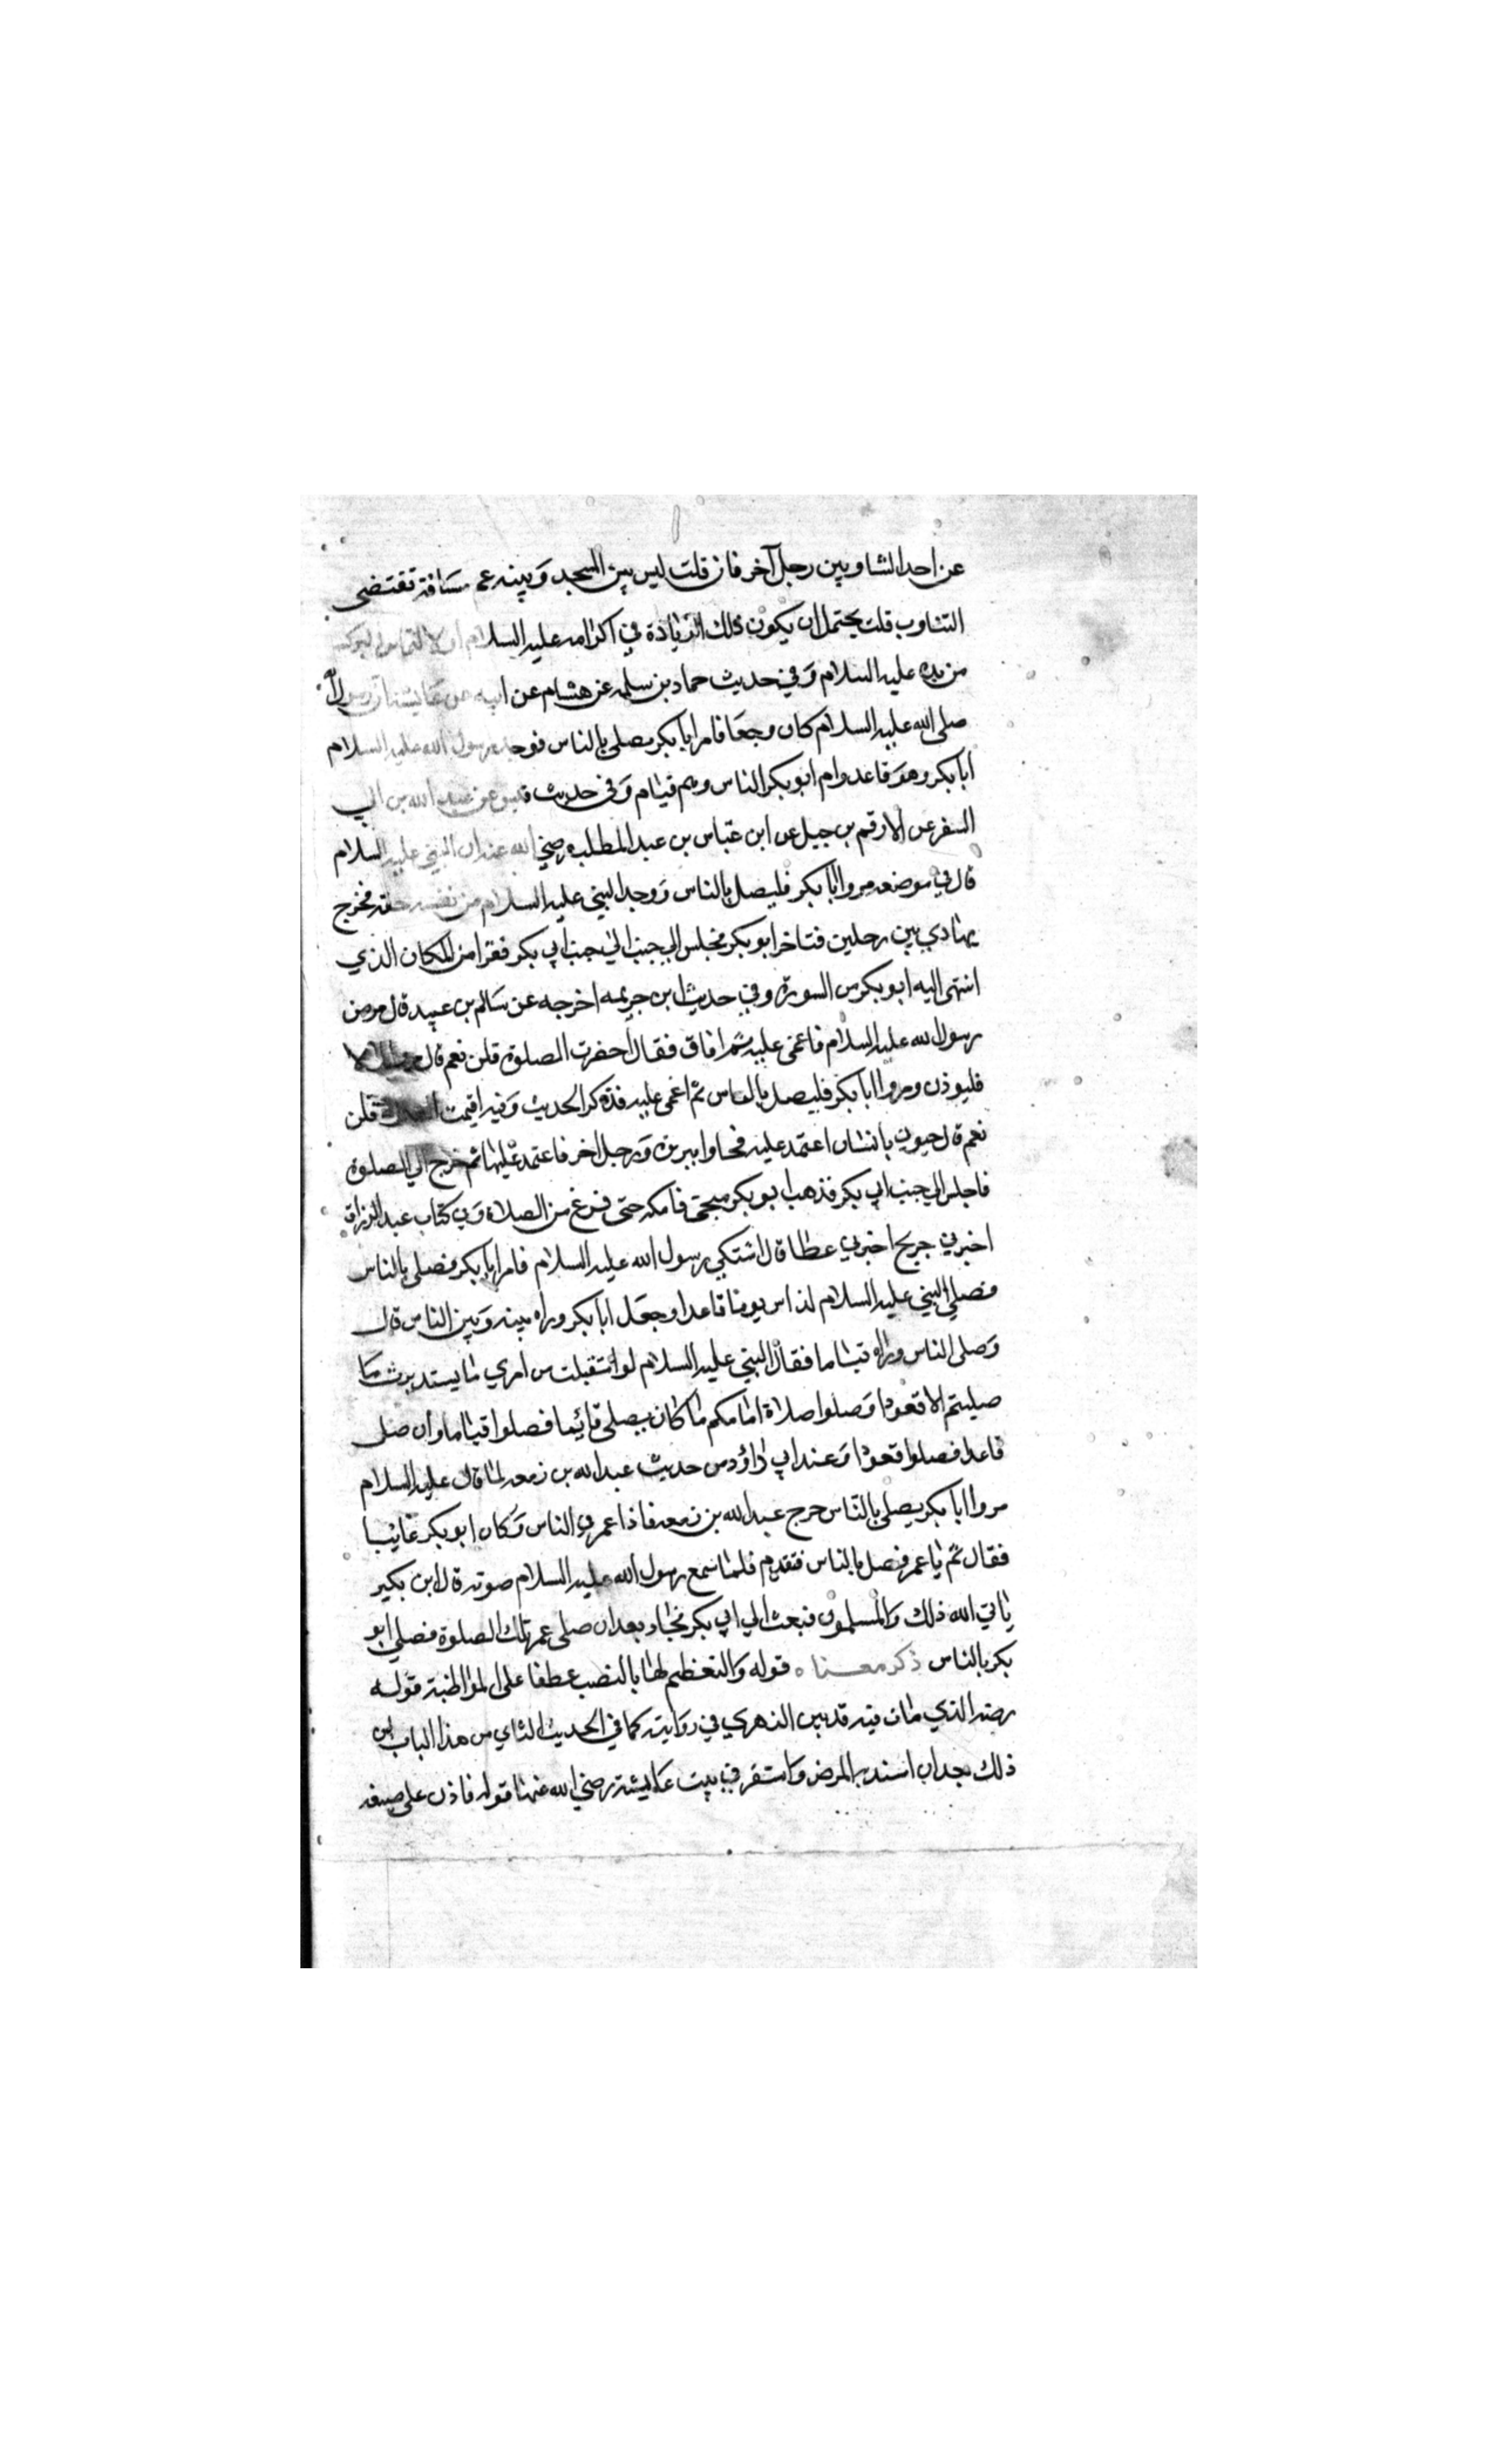 عن احد التناوبين رجل آخر فان قلت ليس بين المسجد وبينه عم مسافة تقتضى
التناوب قلت يحتمل ان يكون ذلك الزيادة في اكرامه عليه السلام او لالتماس البركة
من يده عليه السلام وفي حديث حماد بن سلمه عن هشام عن ابيه عن عايشة ان رسول الله
صلى الله عليه السلام كان وجعا فامر ابا بكر يصلي بالناس فوجد رسول الله عليه السلام
ابا بكر وهو قاعد وام ابو بكر الناس وهم قيام وفي حديث قيس عن عبد الله بن ابي
السفر عن الارقم بن جبل عن ابن عباس بن عبد المطلب رضي الله عنه ان النبي عليه السلام
قال في موضعه مروا ابا بكر فليصل بالناس ووجد النبي عليه السلام من نفسه خفة فخرج
يهادي بين رجلين فتاخر ابو بكر فجلس الي جنب الي جنب ابي بكر فقرا من المكان الذي
انتهى اليه ابو بكر من السورة وفي حديث ابن خزيمه اخرجه عن سالم بن عبيد قال مرض
رسول الله عليه السلام فاغمى عليه ثم افاق فقال احضرت الصلوة قلن نعم قال
فليوذن ومروا ابا بكر فليصل بالناس ثم اغمى عليه فذكر الحديث وفيه اقيمت الصلاة قلن
نعم قال جيوني بانسان اعتمد عليه فجاوا ببريره ورجل اخر فاعتمد عليها ثم خرج الي الصلوة
فاجلس الي جنب ابي بكر فذهب ابو بكر يتنحى فامسكه حتى فرغ من الصلاة وفي كتاب عبد الرزاق
اخبرني جريج اخبرني عطا قال اشتكي رسول الله عليه السلام فامر ابا بكر فصلى بالناس
فصلي النبي عليه السلام لناس يومنا قاعدا وجعل ابا بكر وراه بينه وبين الناس قال
وصلى الناس وراه قياما فقال النبي عليه السلام لو استقبلت من امري ما يستدبرت ما
صليتم الا قعودا وصلوا صلاة امامكم ما كان يصلى قائما فصلوا قياما وان صلى
قاعدا فصلوا قعودا وعند ابي داؤد من حديث عبد الله بن زمعه لما قال عليه السلام
مروا ابا بكر يصلي بالناس خرج عبد الله بن زمعة فاذا عمر في الناس وكان ابو بكر غايبا
فقال قم يا عمر فصل بالناس فتقدم فلما سمع رسول الله عليه السلام صوته قال ابن بكير
يابي الله ذلك والمسلمون فبعث الي ابي بكر فجاء بعد ان صلى عمر تلك الصلوة فصلي ابو
بكر بالناس ذكر معناه قوله والتعظيم لها بالنصب عطفا على المواظبة قوله
مرضه الذي مات فيه قد بين الزهري في روايته كما في الحديث الثاني من هذا الباب ان
ذلك بعد ان اشتد به المرض واستقر في بيت عايشة رضي الله عنها قوله فاذن على صيغة